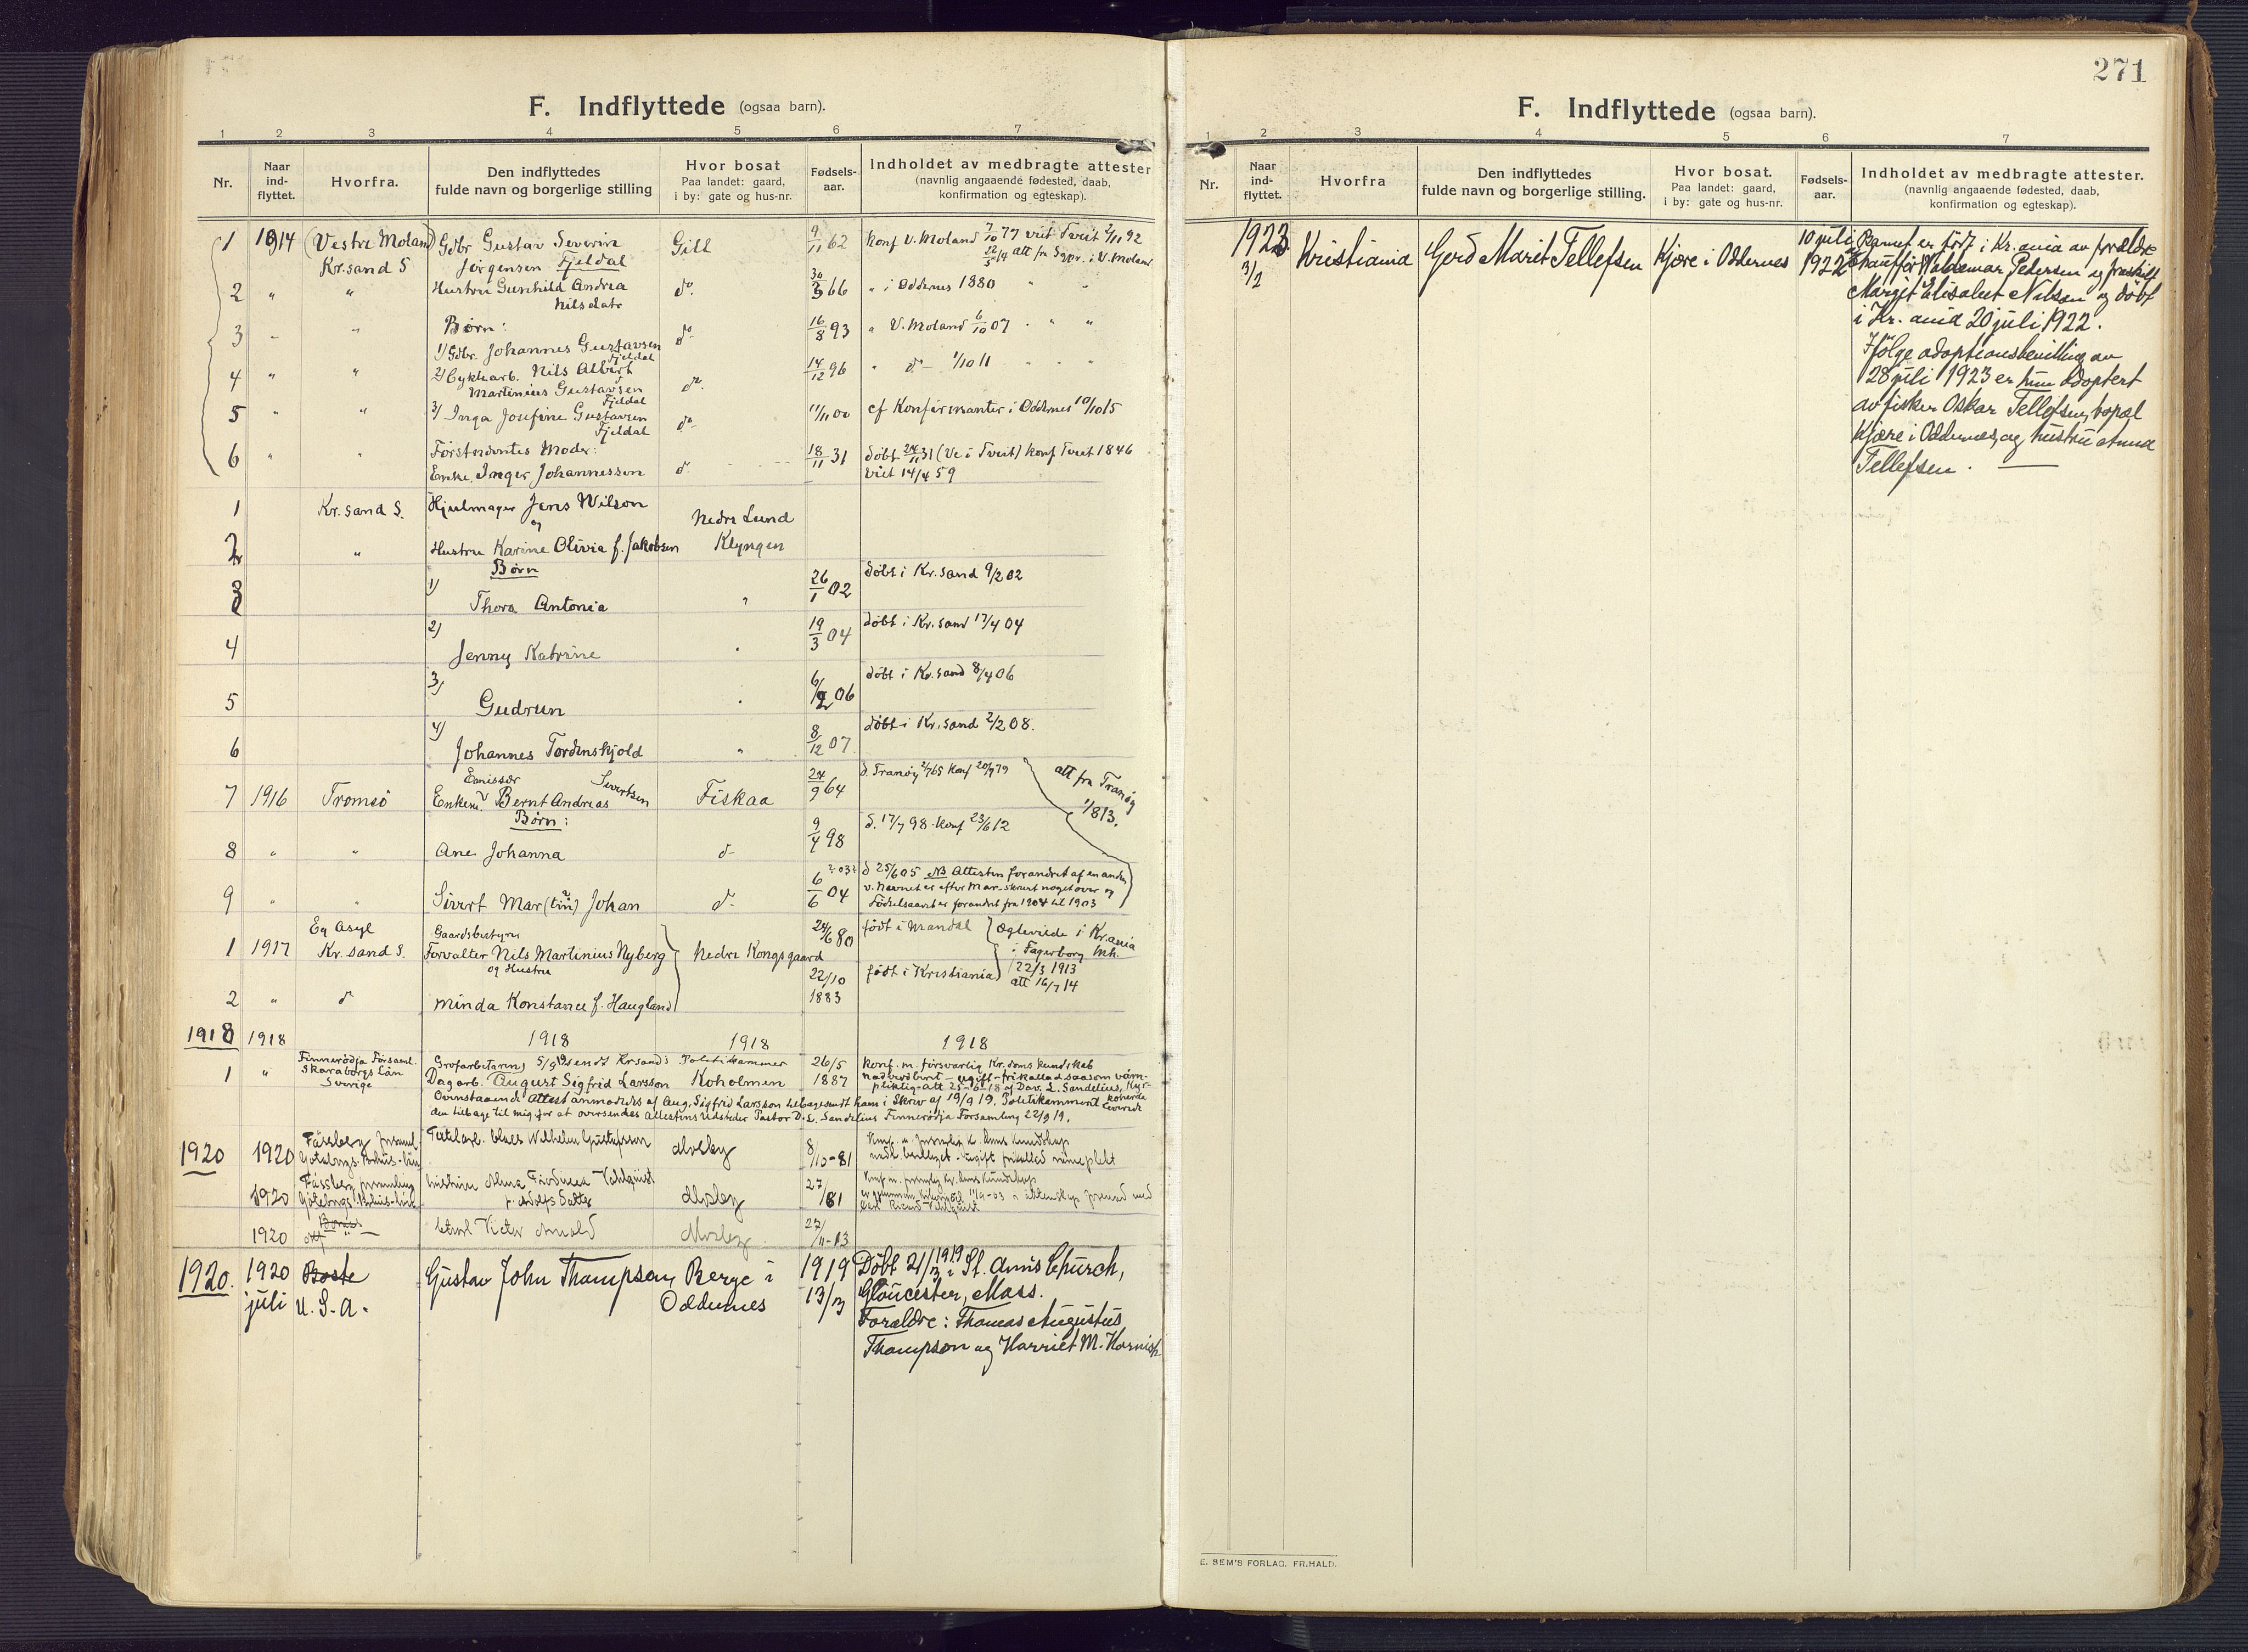 F. Indflyttede (ogsaa barn).
1 2 3 4 5 6 7
Nr. Naar ind-flyttet. Hvorfra. Den indflyttedes fulde navn og borgerlige stilling Hvor bosat Paa landet: gaard, i by: gate og hus-nr. Fødsels-aar. Indholdet av medbragte attester (navnlig angaaende fødested, daab, konfirmation og egteskap).
1 1914 (Vestre Moland) Gdbr Gustav Severin Gill 9/11 62 Konf V. Moland 7/10 77 viet Tveit 2/11 92
Kr.sand S Jørgensen Fjeldal att fra Sgpr. i V. Moland
2 " " Hustru Gunhild Andrea do. 30/3 66 " i Oddernes 1880 " "
Nilsdatr
3 " " Børn: 16/8 93 " V. Moland 6/10 07 " "
1) Gdbr. Johannes Gustavsen Fjeldal do
4 " " 2) Cyklarb. Nils Albert 14/12 96 " do 1/10 11 " "
Martinius Gustavsen Fjeldal do.
5 " " 3) Inga Josefine Gustavsen Fjeldal do 11/11 00 cf Konfirmanter i Oddernes 10/10 15
6 " " Førstnævntes Moder: 18/11 31 døbt 24/11 31 (Ve i Tveit) konf Tveit 1846
Enke Inger Johannessen do viet 14/4 59
1 Kr.sand S. Hjulmager Jens Wilson Nedre Lund
og
2 " Hustru Karine Olivia f. Jakobsen Klyngen
Børn
3 1) Thora Antonia " 26/1 02 døbt i Kr.sand 9/2 02
4 2) Jenny Katrine " 19/3 04 døbt i Kr.sand 17/4 04
5 3) Gudrun " 6/2 06 døbt i Kr.sand 8/4 06
6 4) Johannes Tordenskjold " 8/12 07 døbt i Kr.sand 2/2 08.
7 1916 Tromsø Emissær Enkem. Bernt Andreas Sivertsen Fiskaa 24/9 64 d. Tranøy 2/7 65 Konf 20/7 79 att fra Tranøy 1/8 13.
Børn:
8 " " Ane Johanna do 9/4 98 d. 17/7 98 Konf 23/6 12
9 " " Sivert Mar(tin) Johan do 6/6 04 d 25/6 05 NB Attesten forandret af en anden
v. Navnet er efter Mar- skrevt noget over og
Fødselsaaret er forandret fra 1904 til 1903
1 1917 Eg Asyl Kr.sand S. Gaardsbestyrer Forvalter Nils Martinius Nyberg Nedre Kongsgaard 24/6 80 født i Mandal Ægteviede i Kr.ania
og Hustru i Fagerborg Mh.
2 " do Minda Konstance f. Haugland 22/10 1883 født i Kristiania 22/3 1913
att 16/7 14
1918 1918 1918 1918 1918
1 " Finnerödja Församl. Skaraborgs Län Sverige Grofarbetaren Krsands Politikammer 26/5 1887 Konf. m. försvarlig Kr.doms kundskab
Dagarb. August Sigfrid Larsson Koholmen
Ovenstaaende Attest anmodedes af Aug. Sigfrid Larsson tilbagesendt ham i Skriv af 19/9 19. Politikammeret
den tilbage til mig for at oversendes Attestens Udsteder Pastor D. L. Sandelius Finnerödja Forsamling 22/9 19.
1920 1920 Fässberg Göteborgs- Bohus-län Wilhelm Gustafsson Mosby 8/10-81
1920 Fässberg Göteborgs- Bohus-län Mosby 27/ 81
1920 Carl Victor Arnold Mosby 27/11-03
1920. 1920 Boste Gustav John Thompson Berge i 1919 Døbt 21/3 1919 i St. Ann's Church,
juli U.S.A. Oddernes 13/3 Gloucester, Mass.
Forældre: Thomas Augustus
Thompson og Harriet M.
271
F. Indflyttede (ogsaa barn).
1 2 3 4 5 6 7
Nr. Naar ind-flyttet. Hvorfra Den indflyttedes fulde navn og borgerlige stilling. Hvor bosat. Paa landet: gaard, i by: gate og hus-nr. Fødsels-aar. Indholdet av medbragte attester. (navnlig angaaende fødested, daab, konfirmation og egteskap).
1923 3/2 Kristiania Gerd Marit Tellefsen Kjøre i Oddernes 10 juli 1922 Barnet er født i Kr.ania av forældre
Chauffør Waldemar Petersen og fraskilt
Margit Elisabet Nilsen og døbt
i Kr.ania 20 juli 1922.
Ifølge adoptionsbevilling av
28 juli 1923 er hun adoptert
av fisker Oskar Tellefsen, bopæl
Kjøre i Oddernes, og hustru Anna
Tellefsen.
E. SEM'S FORLAG. FR.HALD.